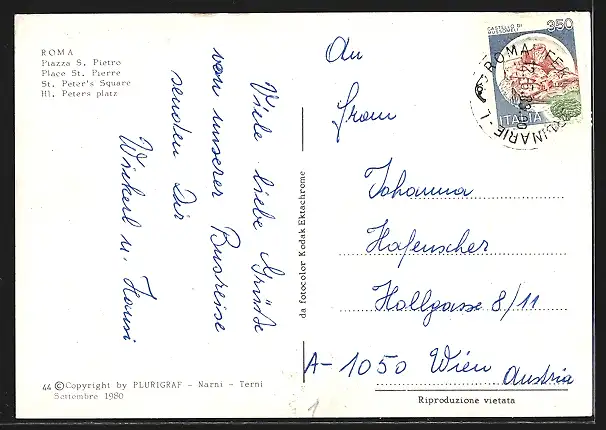 ROMA
Piazza S. Pietro
Place St. Pierre
St. Peter's Square
Hl. Peters platz
Viele liebe Grüße
von unserer Busreise
senden Dir
u. Hansi
44 © Copyright by PLURIGRAF - Narni - Terni
Settembre 1980
da fotocolor Kodak Ektachrome
CASTELLO DI
350
ITALIA
ROMA
An
Frau
Johanna
Hafenscher
Hollgasse 8/11
A-1050 Wien
Austria
Riproduzione vietata
1